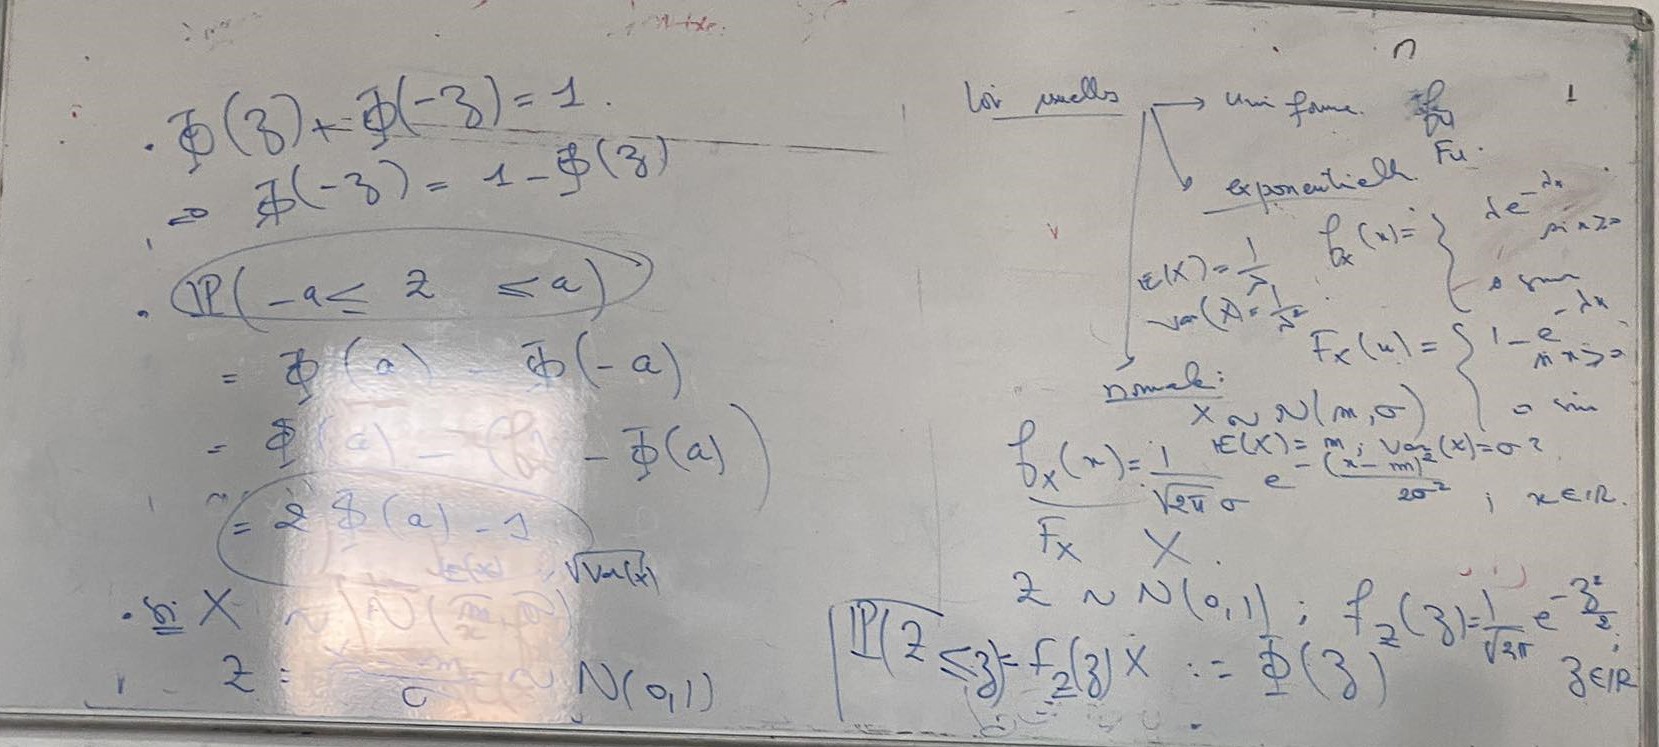 . Φ(z) + Φ(-z) = 1.
⇒ Φ(-z) = 1 - Φ(z)
. IP( -a ≤ Z ≤ a )
= Φ(a) - Φ(-a)
= Φ(a) - ( - Φ(a) )
= 2 Φ(a) - 1
E(x) , √Var(x)
. si X ~ N(m, σ)
Z = (X - m)/σ ~ N(0,1)
n
Loi usuelles → uniforme. 1
Fu.
exponentielle.
f_X(x) = { λe^{-λx} si x ≥ 0
0 sinon
E(X) = 1/λ
Var(X) = 1/λ²
F_X(x) = { 1 - e^{-λx} si x ≥ 0
0 sinon
normale:
X ~ N(m, σ)
E(X) = m ; Var(X) = σ²
f_X(x) = 1/(√2π σ) e^{-(x-m)²/2σ²} ; x ∈ IR.
F_X X.
Z ~ N(0,1) ; f_Z(z) = 1/√2π e^{-z²/2} ; z ∈ IR
IP(Z ≤ z) = F_Z(z) X := Φ(z)